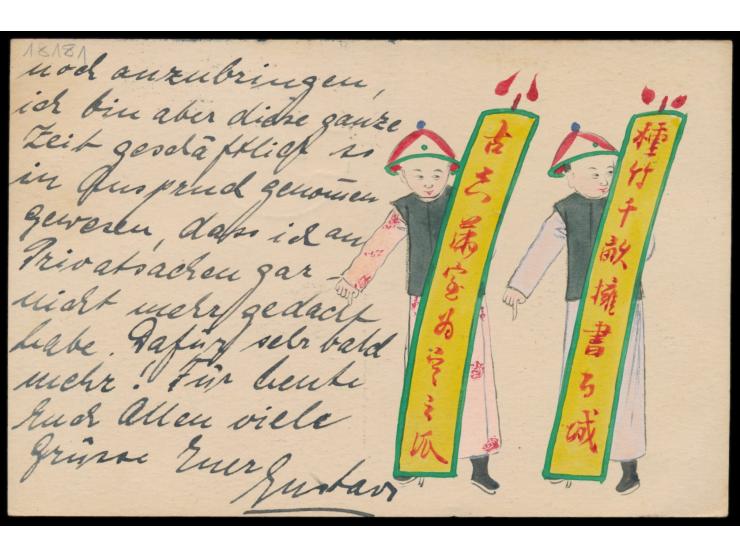 18181
noch anzubringen,
ich bin aber diese ganze
Zeit geschäftlich so
in Anspruch genom̄en
gewesen, dass ich an
Privatsachen gar
nicht mehr gedacht
habe. Dafür sehr bald
mehr! Für heute
Euch Allen viele
Grüsse Euer
Gustav
種竹千畝擁書百城
古 滿室為